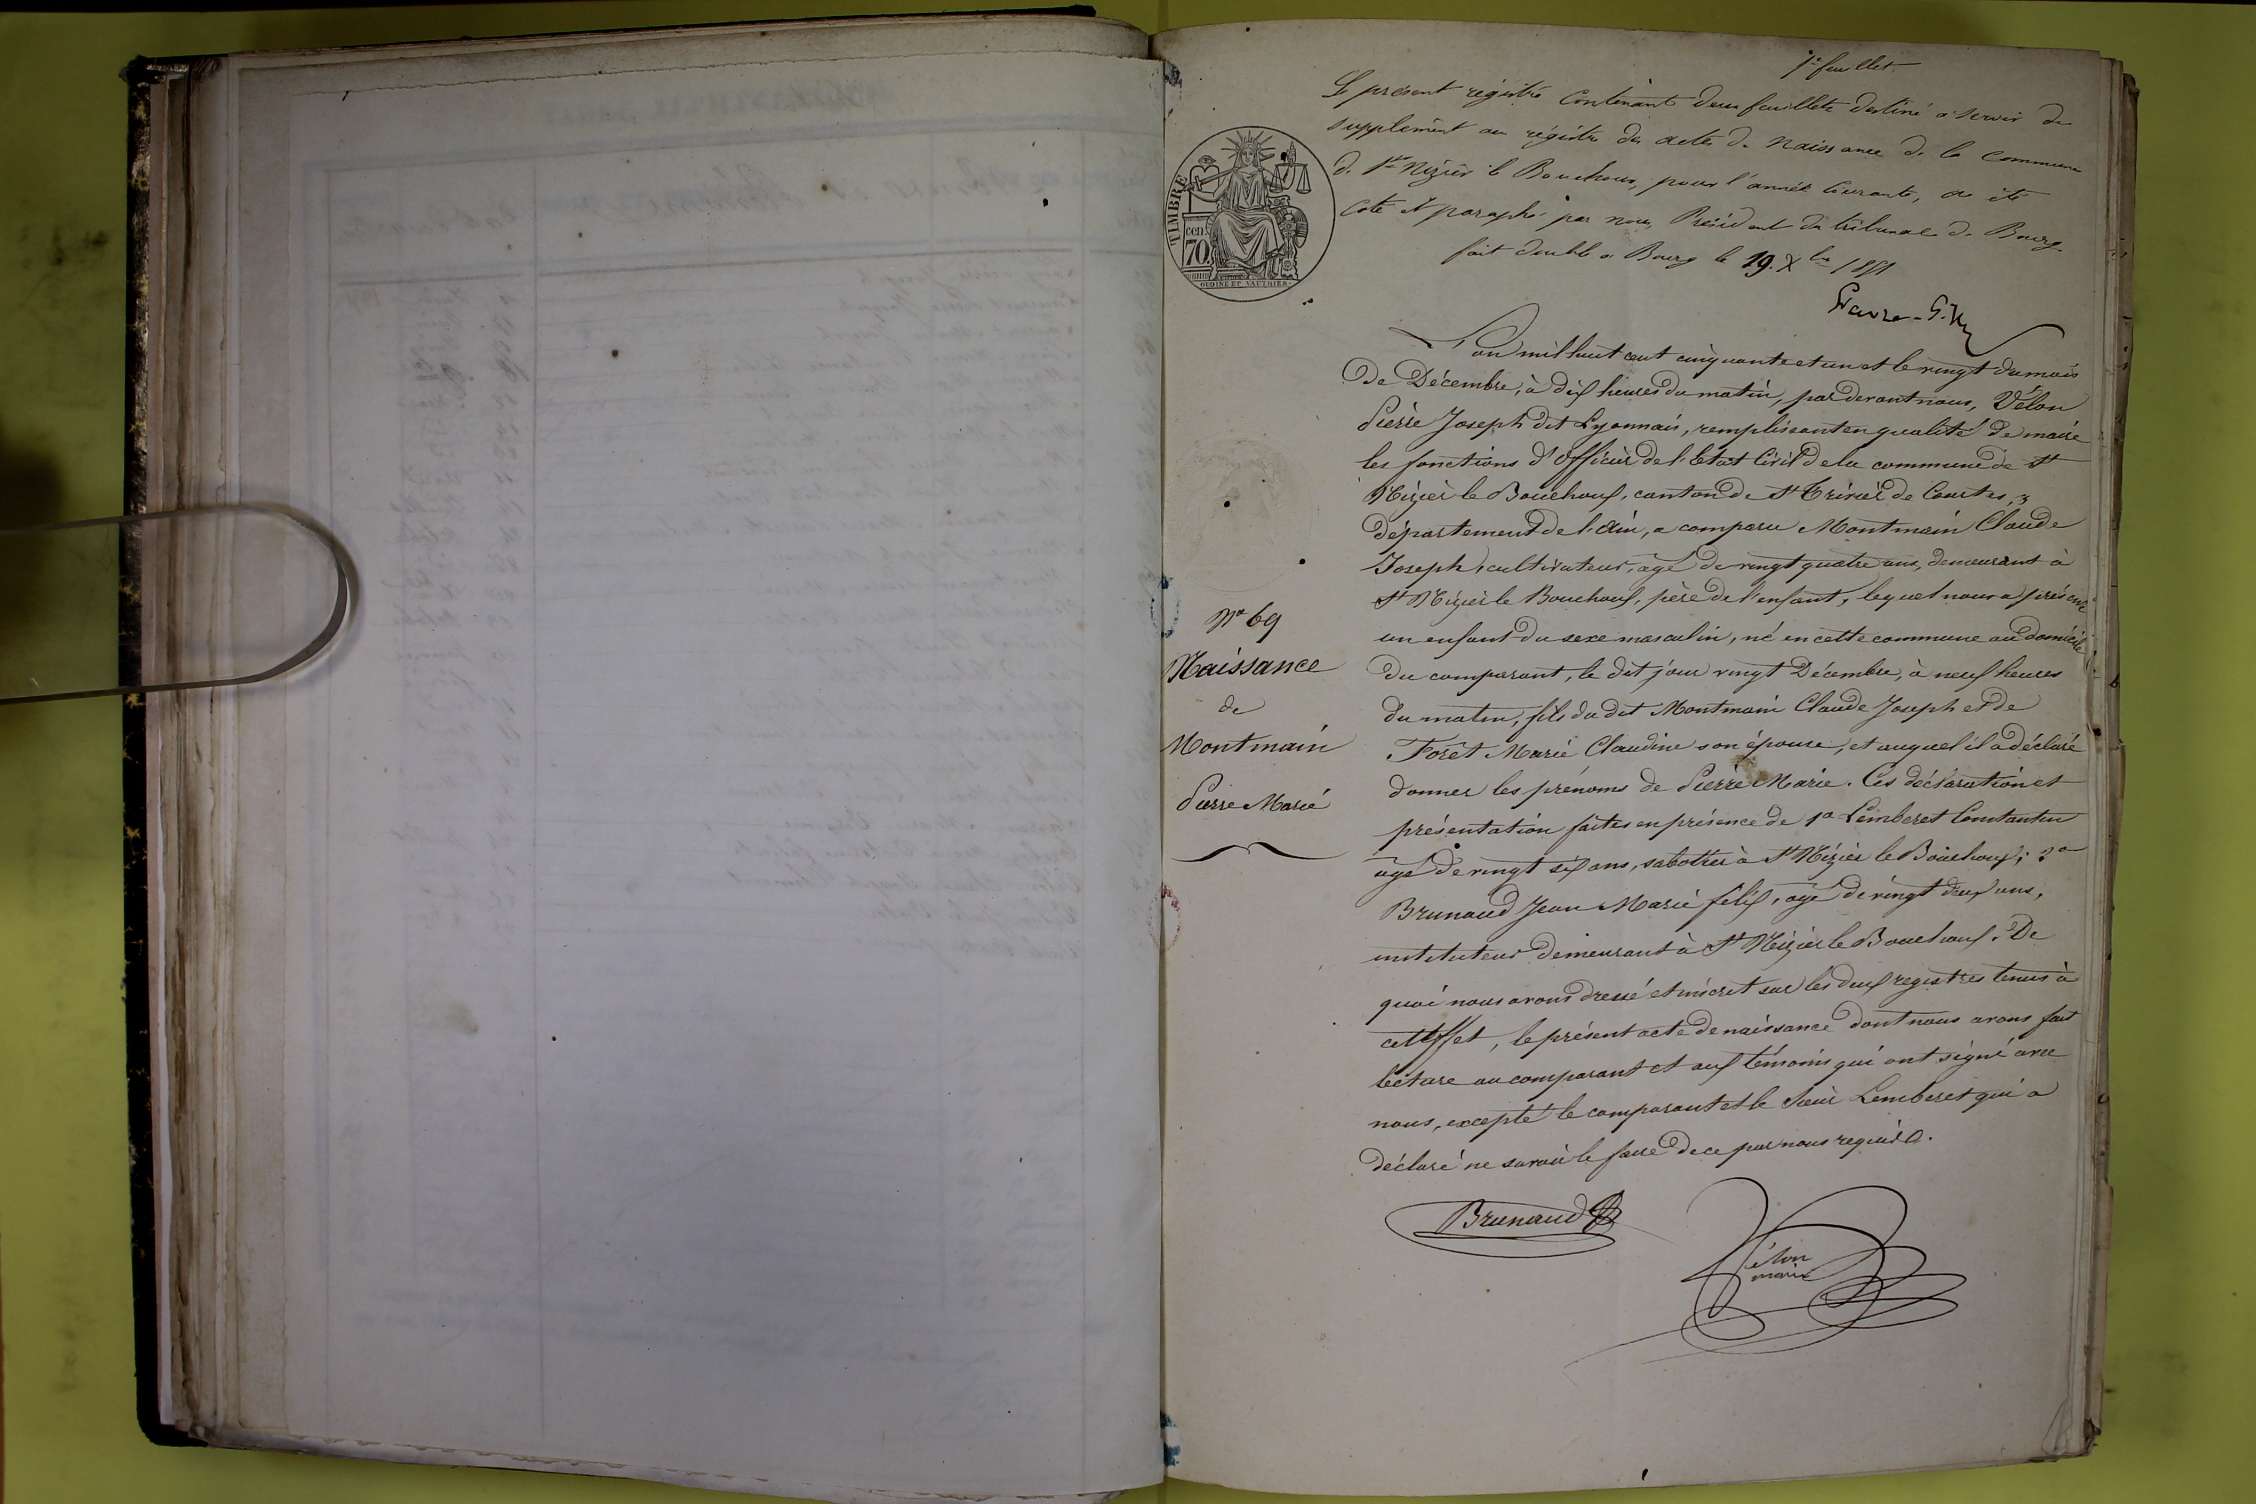 1er feuillet.
Le présent registre contenant deux feuillets destiné à servir de
supplément au régistre des actes de naissance de la commune
de St Nizier le Bouchoux, pour l'année courante, a été
coté et paraphé par nous, Président du tribunal de Bourg.
fait double à Bourg le 19. Xbre 1851
TIMBRE
cen. 70.
OUDINE ET VAUTHIER.
L'an mil huit cent cinquante et un et le vingt du mois
de Décembre, à dix heures du matin, par devant nous, Vélon
Pierre Joseph dit Lyonnais, remplissant en qualité de maire
les fonctions d'Officier de l'Etat Civil de la commune de St
Nizier le Bouchoux, canton de St Trivier de Courtes,
département de l'Ain, a comparu Montmain Claude
Joseph, cultivateur, âgé de vingt quatre ans, demeurant à
St Nizier le Bouchoux, père de l'enfant, lequel nous a présenté
un enfant du sexe masculin, né en cette commune au domicile
du comparant, le dit jour vingt Décembre, à neuf heures
du matin, fils du dit Montmain Claude Joseph et de
Forêt Marie Claudine son épouse, et auquel il a déclaré
donner les prénoms de Pierre Marie. Ces déclaration et
présentation faites en présence de 1o Lemberet Constantin
âgé de vingt six ans, sabotier à St Nizier le Bouchoux; 2o
Brunaud Jean Marie félix, âgé de vingt deux ans,
instituteur demeurant à St Nizier le Bouchoux. De
quoi nous avons dressé et inscrit sur les deux registres tenus à
cet effet, le présent acte de naissance dont nous avons fait
lecture au comparant et aux témoins qui ont signé avec
nous, excepté le comparant et le Sieur Lemberet qui a
déclaré ne savoir le faire de ce par nous requis.
No 69
Naissance
de
Montmain
Pierre Marie
Brunaud
Vélon
maire